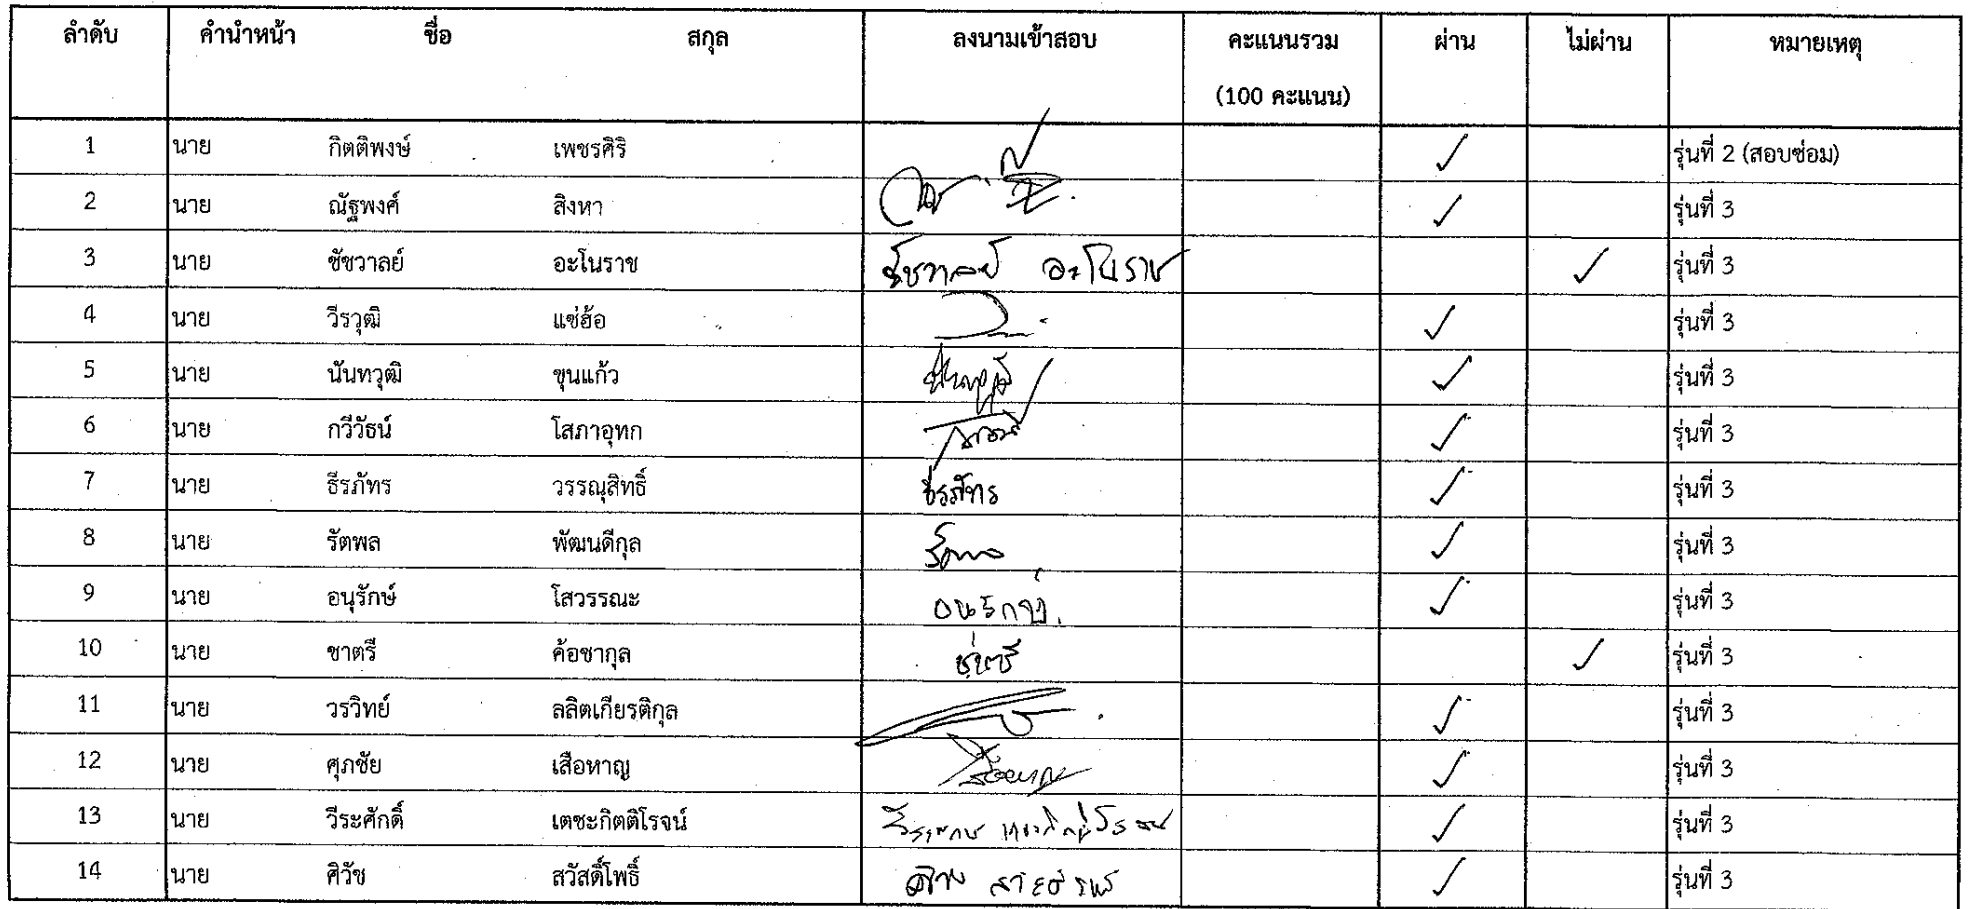 ลำดับ คำนำหน้า ชื่อ สกุล ลงนามเข้าสอบ คะแนนรวม ผ่าน ไม่ผ่าน หมายเหตุ
(100 คะแนน)
1 นาย กิตติพงษ์ เพชรศิริ ✓ รุ่นที่ 2 (สอบซ่อม)
2 นาย ณัฐพงศ์ สิงหา ✓ รุ่นที่ 3
3 นาย ชัชวาลย์ อะโนราช ชัชวาลย์ อะโนราช ✓ รุ่นที่ 3
4 นาย วีรวุฒิ แซ่ฮ้อ ✓ รุ่นที่ 3
5 นาย นันทวุฒิ ขุนแก้ว ✓ รุ่นที่ 3
6 นาย กวีวัธน์ โสภาอุทก ✓ รุ่นที่ 3
7 นาย ธีรภัทร วรรณุสิทธิ์ ธีรภัทร ✓ รุ่นที่ 3
8 นาย รัตพล พัฒนดีกุล ✓ รุ่นที่ 3
9 นาย อนุรักษ์ โสวรรณะ ✓ รุ่นที่ 3
10 นาย ชาตรี ค้อชากุล ✓ รุ่นที่ 3
11 นาย วรวิทย์ ลลิตเกียรติกุล ✓ รุ่นที่ 3
12 นาย ศุภชัย เสือหาญ ✓ รุ่นที่ 3
13 นาย วีระศักดิ์ เตชะกิตติโรจน์ ✓ รุ่นที่ 3
14 นาย ศิวัช สวัสดิ์โพธิ์ ✓ รุ่นที่ 3